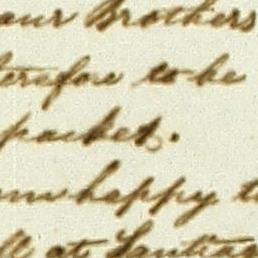 our Brothers
therefore to be
packet.
am happy to
at Santiago